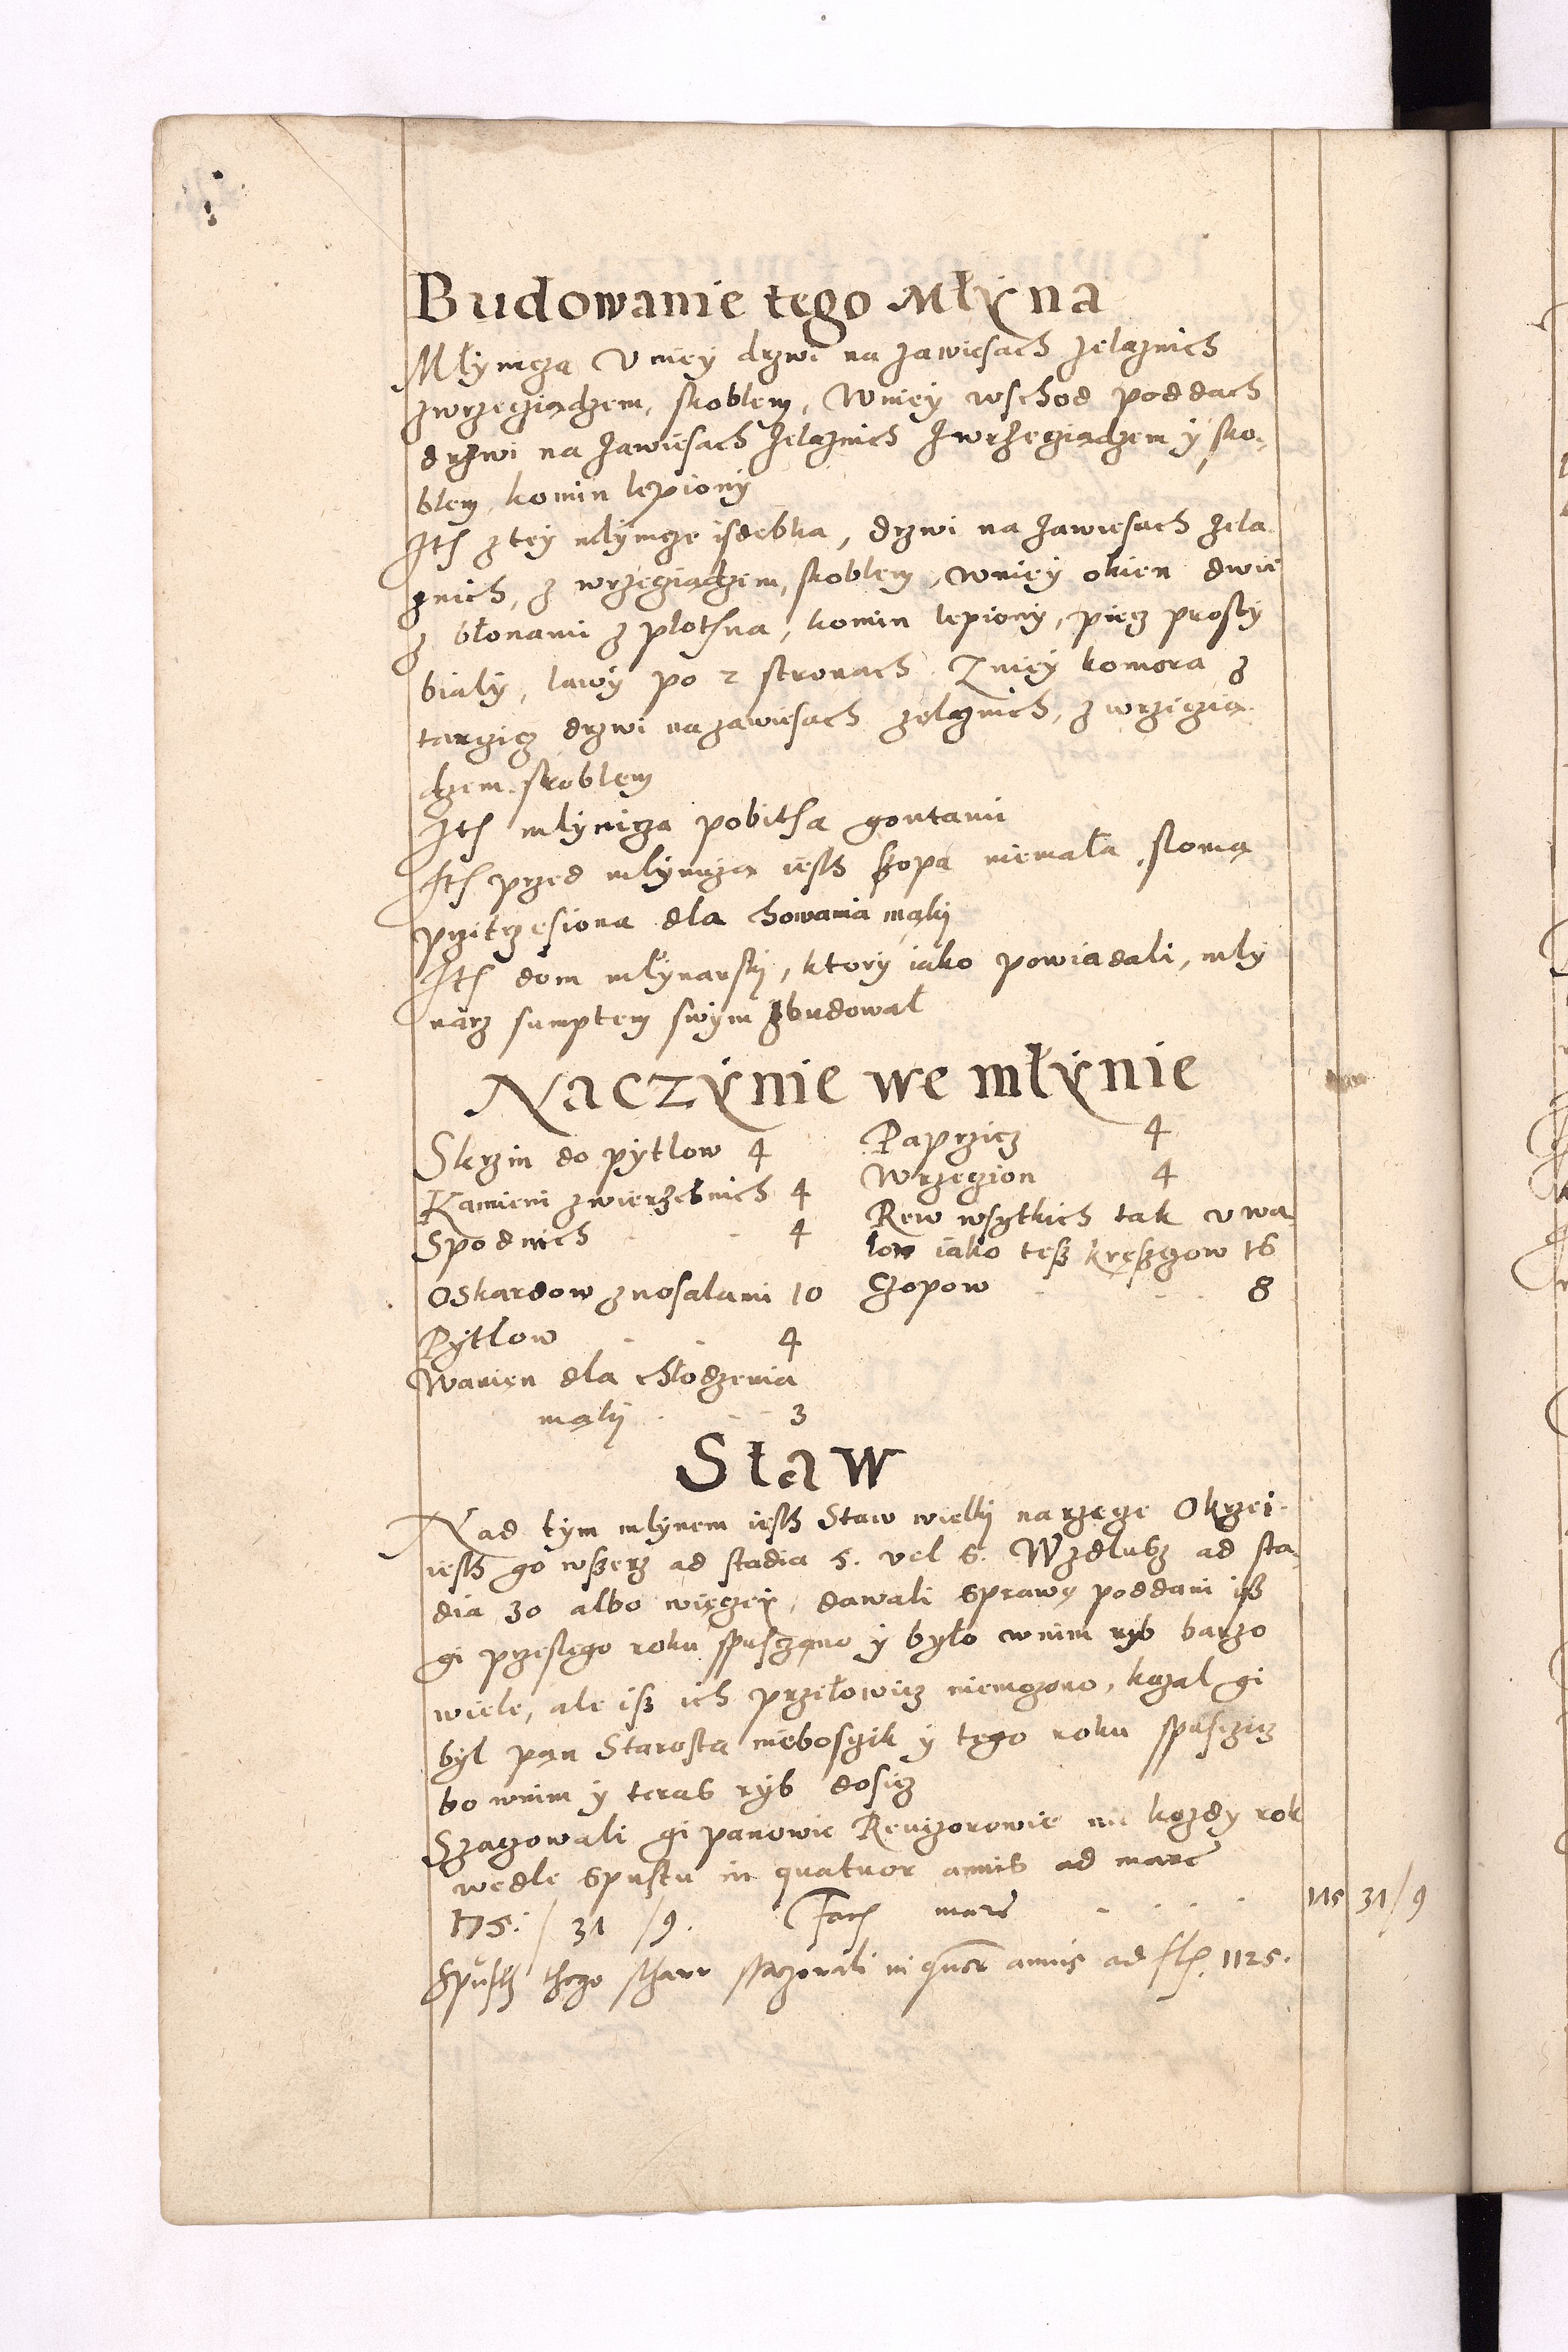 Budowanie tego Młyna
Młynicza V niey drzwi na zawiesach zelaznich
zwrzecziądzem, skoblem, Wniey wschod poddach
drzwi na zawiesach zelaznich zwrzecziądzem y sko-
blem, komin lepiony
Itm z tey młynicze isdebka, drzwi na zawiesach zela
znich, z wrzecziądzem, skoblem, wniey okien dwie
z błonami z płothna, komin lepiony, piecz prosty
biały, lawy po 2 stronach Z niey komora z
tarczicz drzwi na zawiesach zelaznich, z wrzeczią
dzem skoblem
Itm młynicza pobitha gontami
Itm przed młyniczą iesth szopa niemała słomą
przitrzęsiona dla chowania mąky
Itm dom młynarsky, ktory iako powiadali, mły
narz sumptem swym zbudował
Naczynie we młynie
Skrzin do pytlow 4
Kamieni zwierzchnich 4
Spodnich 4
Oskardow z nosalami 10
Pytlow 4
Wanien dla chłodzenia
mąky 3
Paprzicz 4
Wrzeczion 4
Rew wsytkich tak v wa
łow iako tesz kręszgow 16
Czopow 8
Staw
Nad tym młynem iesth Staw wielky na rzecze Okrzei
iesth go wszerz ad stadia 5. vel 6. Wzdlusz ad sta-
dia 30 albo więczey, dawali sprawę poddani isz
gi przeslego roku spusczano y było wnim ryb barzo
wiele, ale isz ich przełowicz niemozono, kazal gi
był pan Starosta niebosczik y tego roku spusczicz
bo wnim y teras ryb dosicz
Szaczowali gi panowie Reuizorowie na kozdy rok
wedle spustu in quatuor annis ad marc
175. / 31 / 9. Facit marc 175 31/9
Spusth thego sthawu szaczowali in quatuor annis ad fl. 1125.